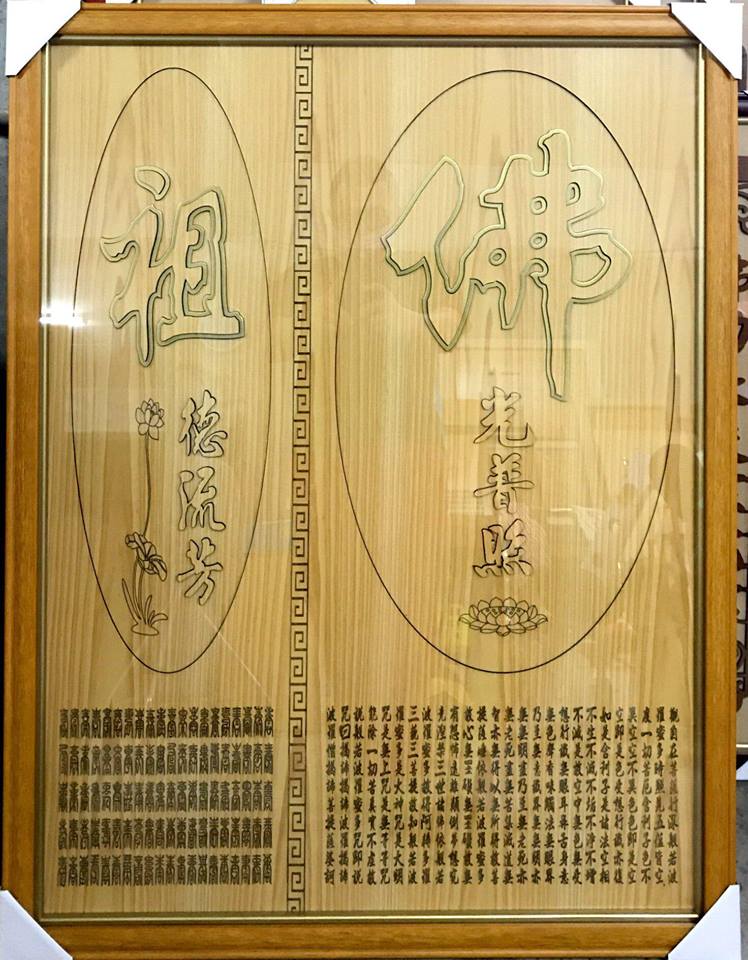 佛
光普照
觀自在菩薩行深般若波
羅蜜多時照見五蘊皆空
度一切苦厄舍利子色不
異空空不異色色即是空
空即是色受想行識亦復
如是舍利子是諸法空相
不生不滅不垢不淨不增
不減是故空中無色無受
想行識無眼耳鼻舌身意
無色聲香味觸法無眼界
乃至無意識界無無明亦
無無明盡乃至無老死亦
無老死盡無苦集滅道無
智亦無得以無所得故菩
提薩埵依般若波羅蜜多
故心無罣礙無罣礙故無
有恐怖遠離顛倒夢想究
竟涅槃三世諸佛依般若
波羅蜜多故得阿耨多羅
三藐三菩提故知般若波
羅蜜多是大神咒是大明
咒是無上咒是無等等咒
能除一切苦真實不虛故
說般若波羅蜜多咒即說
咒曰揭諦揭諦波羅揭諦
波羅僧揭諦菩提薩婆訶
祖
德流芳